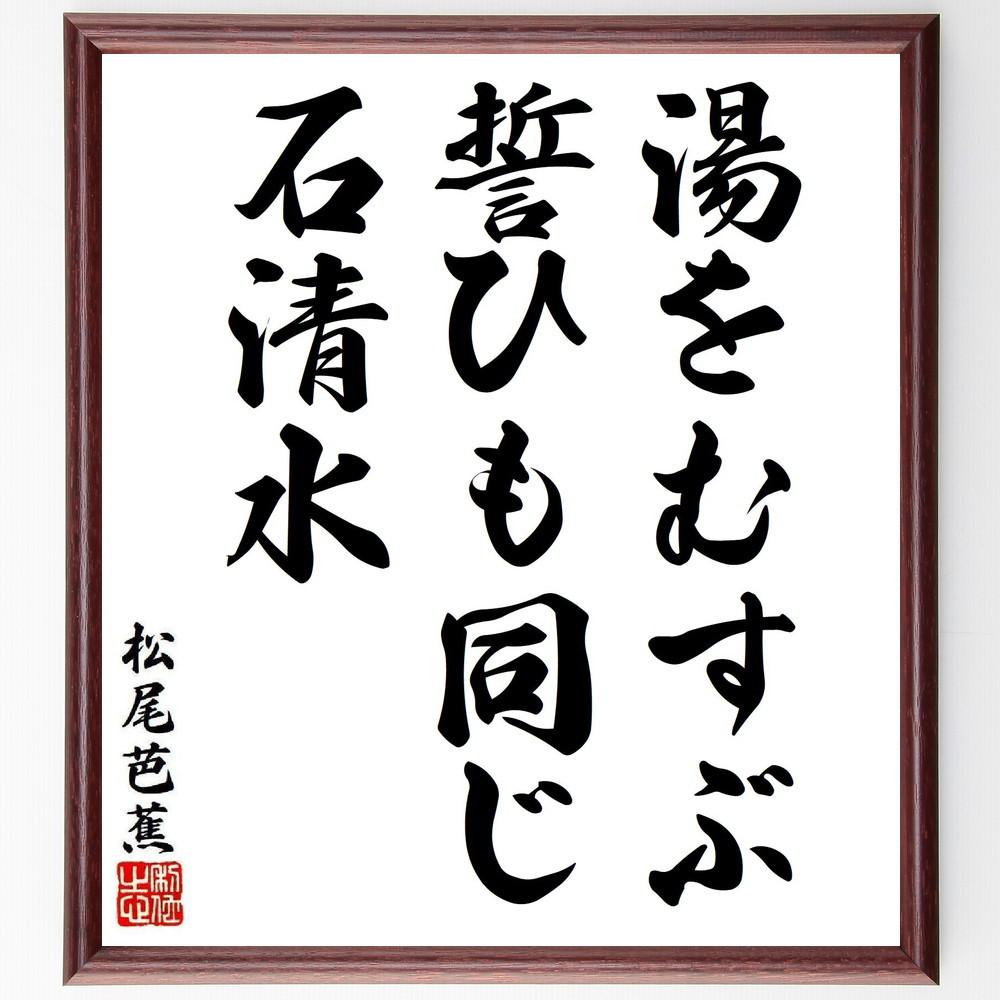 湯をむすぶ
誓ひも同じ
石清水
松尾芭蕉